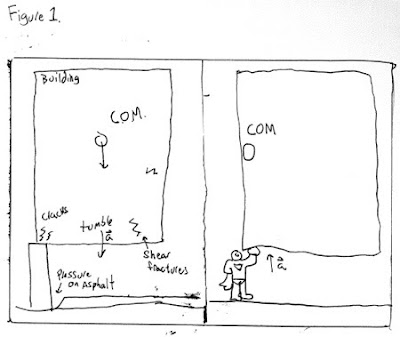 Figure 1.
Building
C.O.M.
COM
cracks
tumble
a⃗
shear
fractures
pressure
on asphalt
a⃗